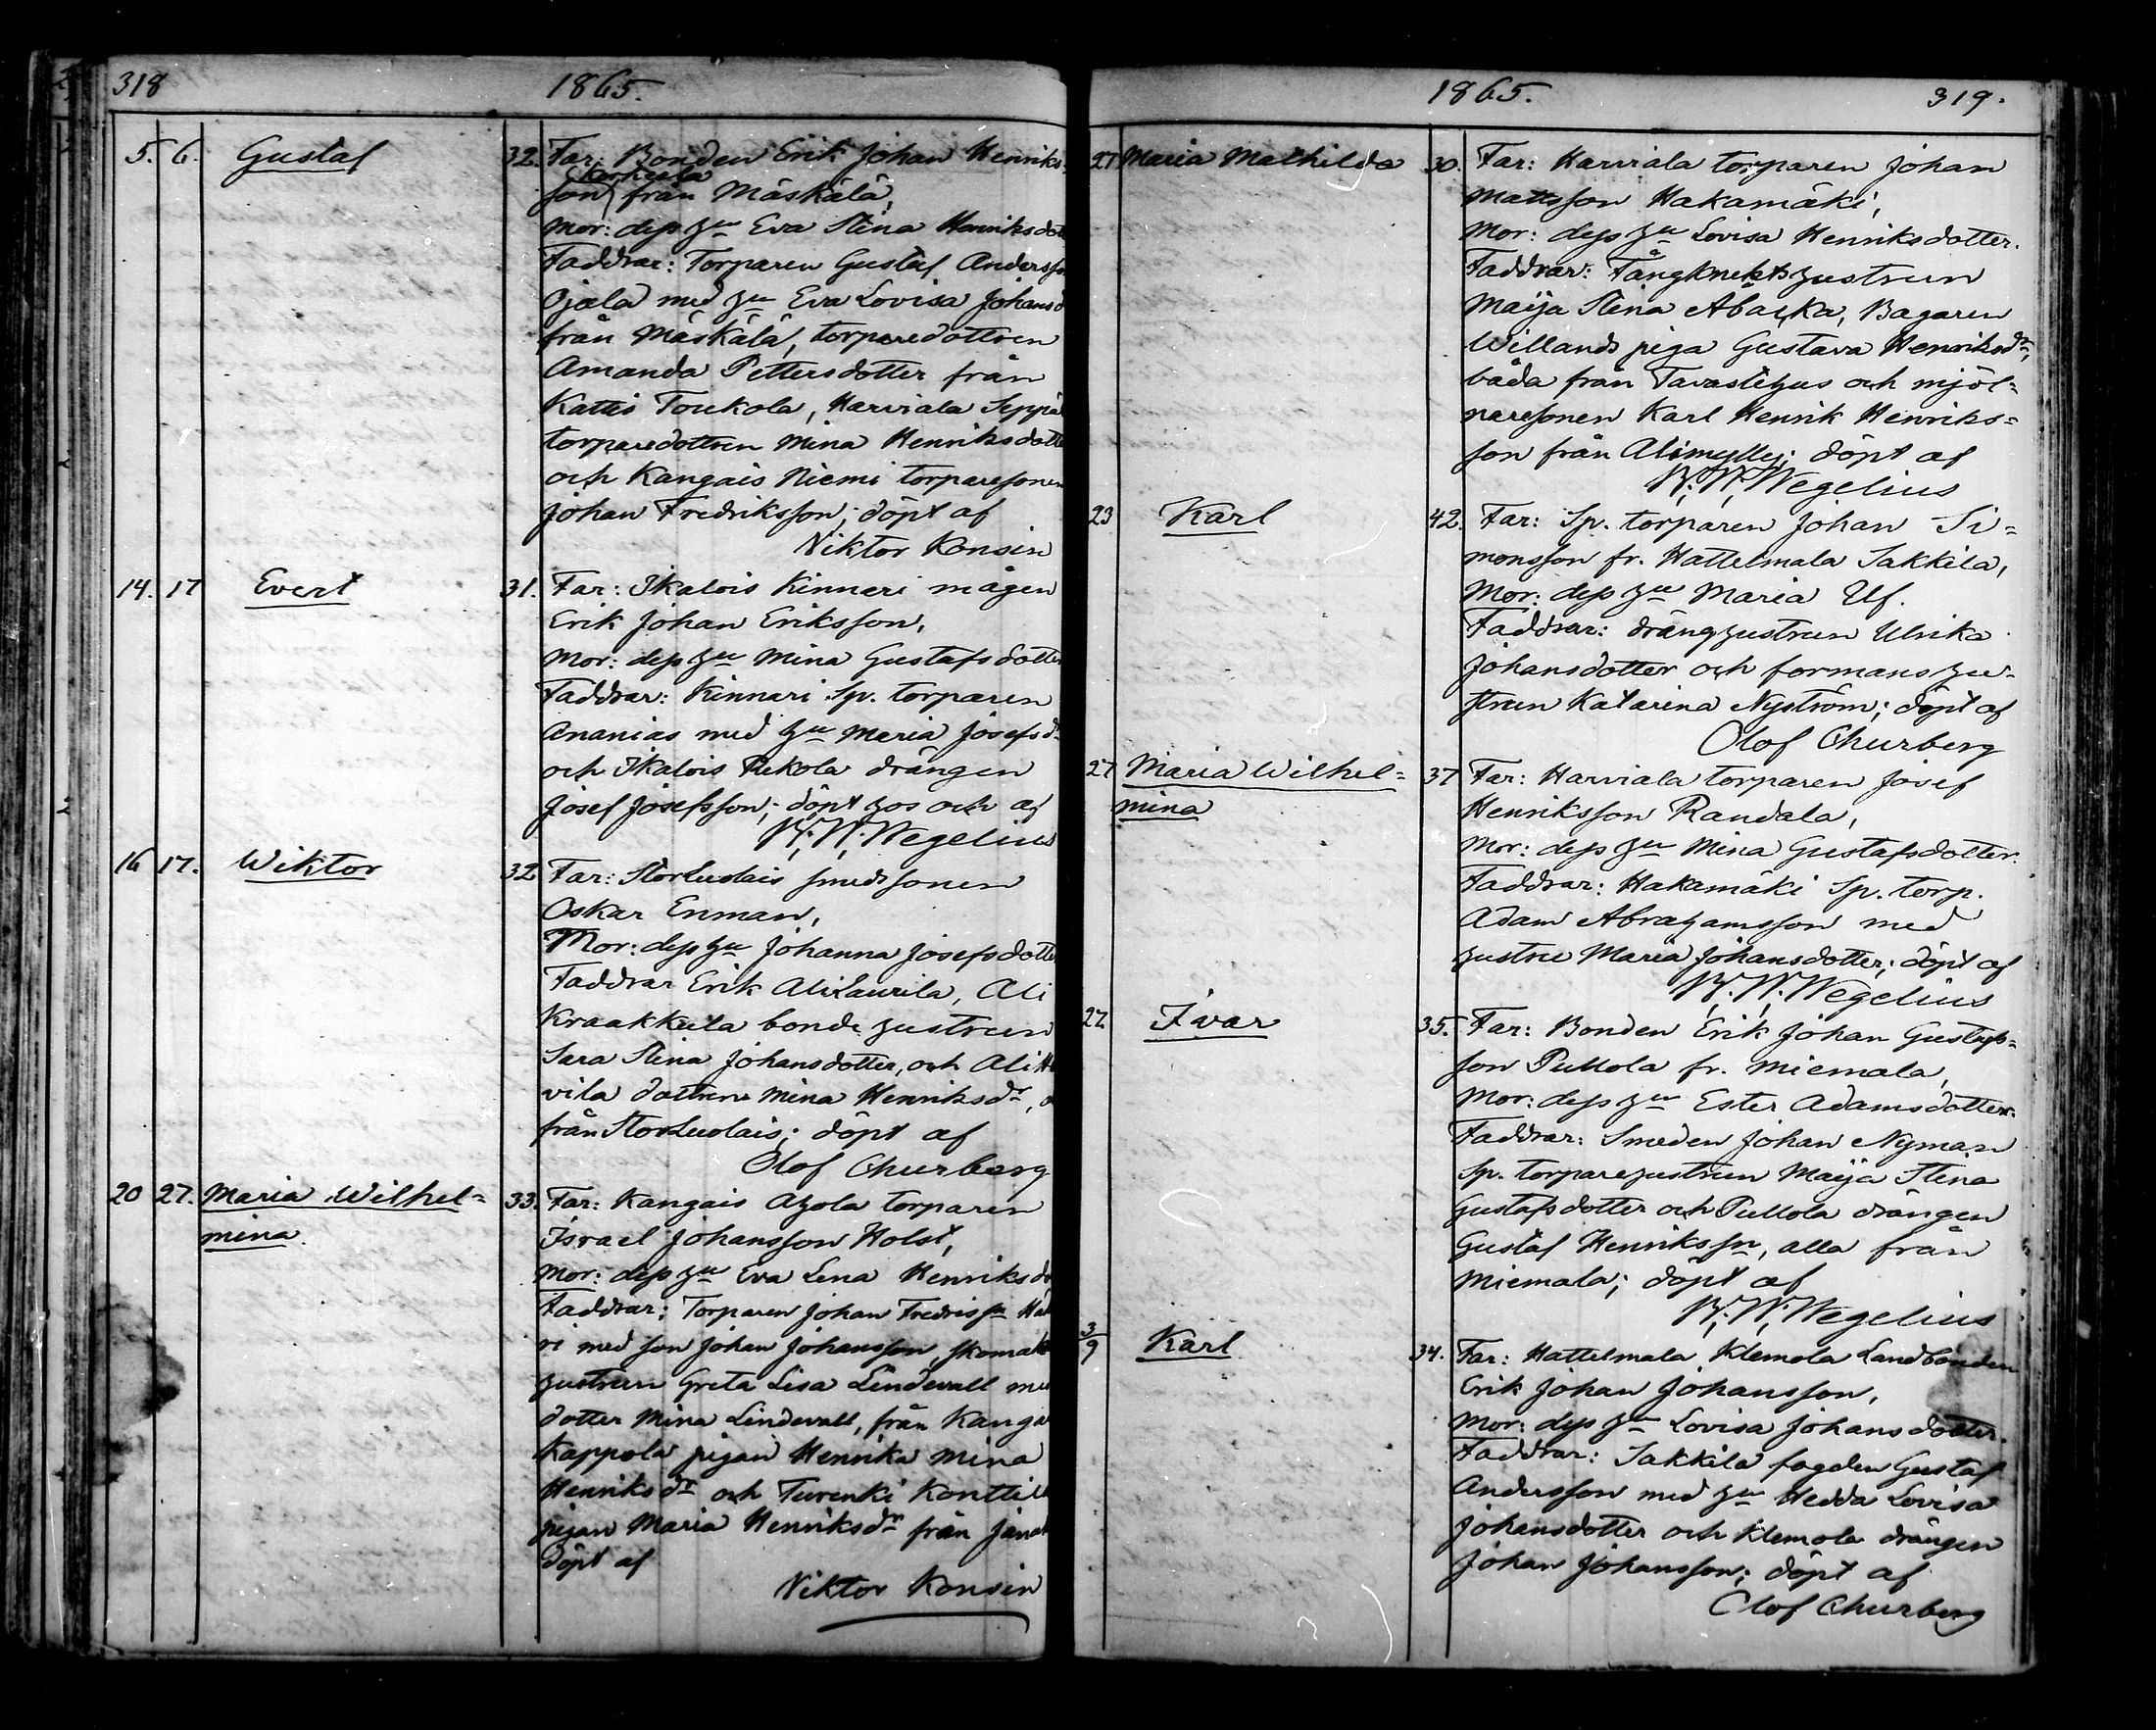 318
1865.
5. 6. Gustaf 32. Far: Bonden Erik Johan Henriks-
son från Mäskälä,
Mor: dess hu Eva Stina Henriksdott
Faddrar: Torparen Gustaf Anderss
Ojala med hu Eva Lovisa Johansd
från Mäskälä, torparedottren
Amanda Pettersdotter från
Kattis Toukola, Harviala Seppä
torparedottren Mina Henriksdotte
och Kangais Niemi torparesonen
Johan Fredriksson; döpt af
Viktor Konsin
14. 17 Evert 31. Far: Ikalois Kinnari mågen
Erik Johan Eriksson,
Mor: dess hu Mina Gustafsdotter
Faddrar: Kinnari Sp. torparen
Ananias med hu Maria Josefsdr
och Ikalois Pukola drängen
Josef Josefsson; döpt hos och af
K. W. Wegelius
16 17. Wiktor 32 Far: StorLuolais smedssonen
Oskar Enman,
Mor: dess hu Johanna Josefsdotte
Faddrar Erik AliLaurila, Ali
Kraakkula bonde hustrun
Sara Stina Johansdotter, och Ali H
vila dottren Mina Henriksdr,
från StorLuolais; döpt af
Olof Churberg
20 27. Maria Wilhel= 33. Far: Kangais Ahola torparen
mina. Israel Johansson Holst,
Mor: dess hu Eva Lena Henriksdo
Faddrar: Torparen Johan Fredrissn Ha
ri med son Johan Johansson, skomak
hustrun Greta Lisa Lindevall me
dotter Mina Lindevall, från Kanga
Kappola pigan Henrika Mina
Henriksdr och Turenki Konttil
pigan Maria Henriksdr från Jana
döpt af
Viktor Konsin
1865. 319.
27 Maria Mathilda 30. Far: Harviala torparen Johan
Mattsson Hakamäki,
Mor: dess hu Lovisa Henriksdotter.
Faddrar: Fångknektshustrun
Maija Stina Abacka, Bagaren
Willands piga Gustava Henriksdr,
båda från Tavastehus och mjöl=
naresonen Karl Henrik Henriks=
son från Alimylly; döpt af
K. W. Wegelius
23 Karl 42. Far: Sp. torparen Johan Si=
monsson fr. Hattelmala Sakkila,
Mor: dess hu Maria Ulf.
Faddrar: dränghustrun Ulrika
Johansdotter och formanshu-
strun Katarina Nyström; döpt af
Olof Churberg
27 Maria Wilhel= 37 Far: Harviala torparen Josef
mina Henriksson Randala,
Mor: dess hu Mina Gustafsdotter.
Faddrar: Hakamäki Sp. torp.
Adam Abrahamsson med
hustru Maria Johansdotter; döpt af
K. W. Wegelius
27 Ivar 35. Far: Bonden Erik Johan Gustafs=
son Pullola fr. Miemala,
Mor: dess hu Ester Adamsdotter.
Faddrar: Smeden Johan Nyman
Sp. torparehustrun Maija Stina
Gustafsdotter och Pullola drängen
Gustaf Henrikssn, alla från
Miemala; döpt af
K. W. Wegelius
3/9 Karl 34. Far: Hattelmala Klemola Landbonden
Erik Johan Johansson,
Mor: dess hu Lovisa Johansdotter.
Faddrar: Sakkila fogden Gustaf
Andersson med hu Hedda Lovisa
Johansdotter och Klemola drängen
Johan Johansson; döpt af
Olof Churberg